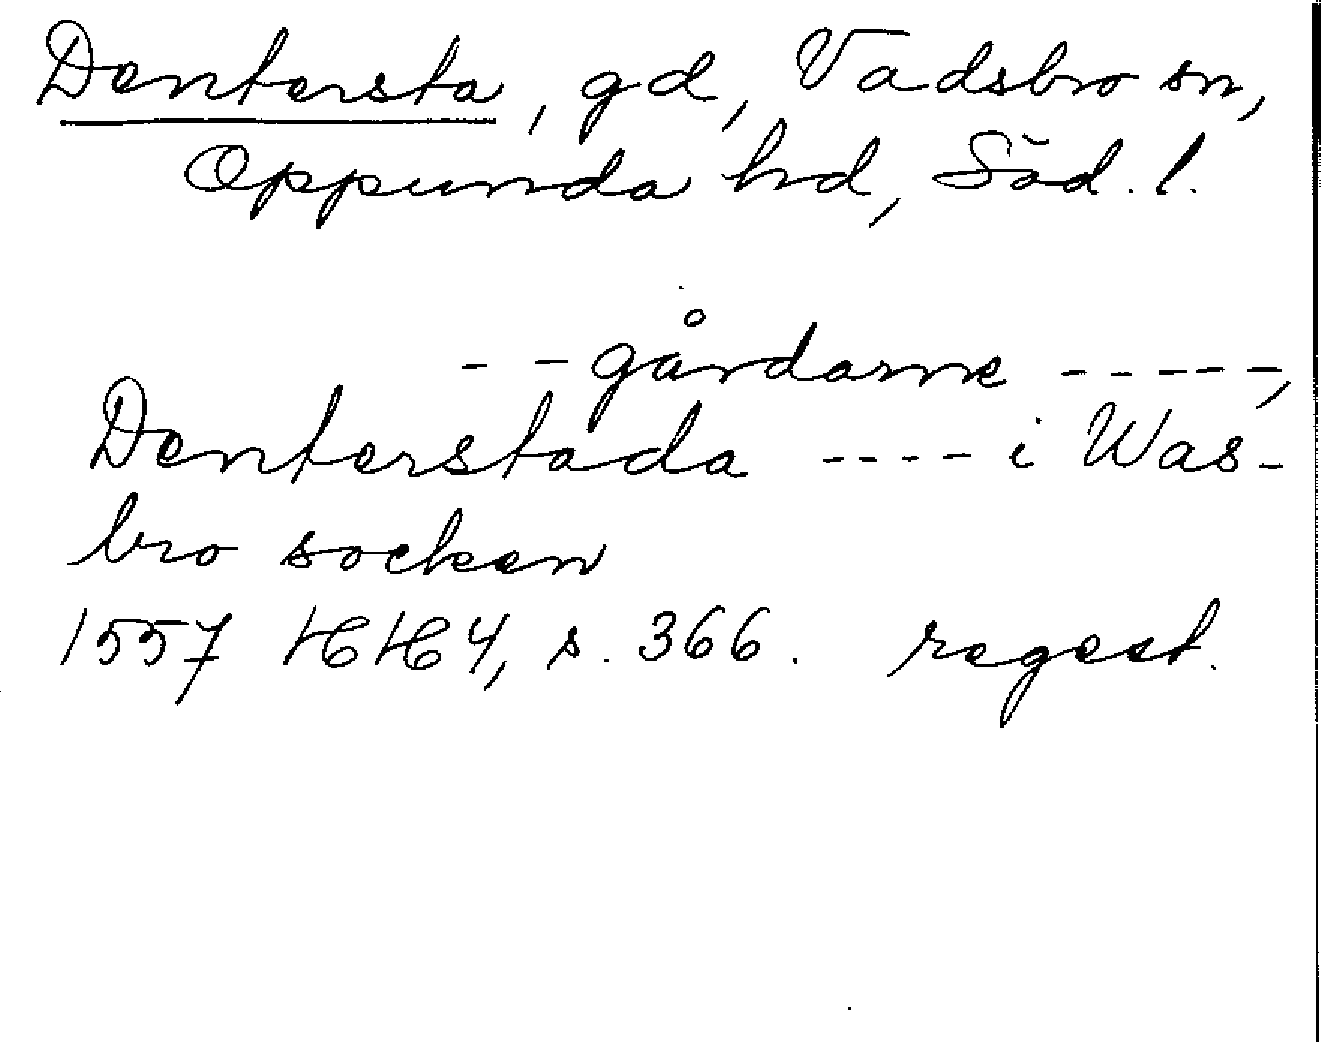 Dentersta, gd, Vadsbro sn,
Oppunda hd, Söd. l.
- - gårdarne - - - - -,
Denterstada - - - - i Was-
bro socken
1557 HH 4, s. 366. regest.